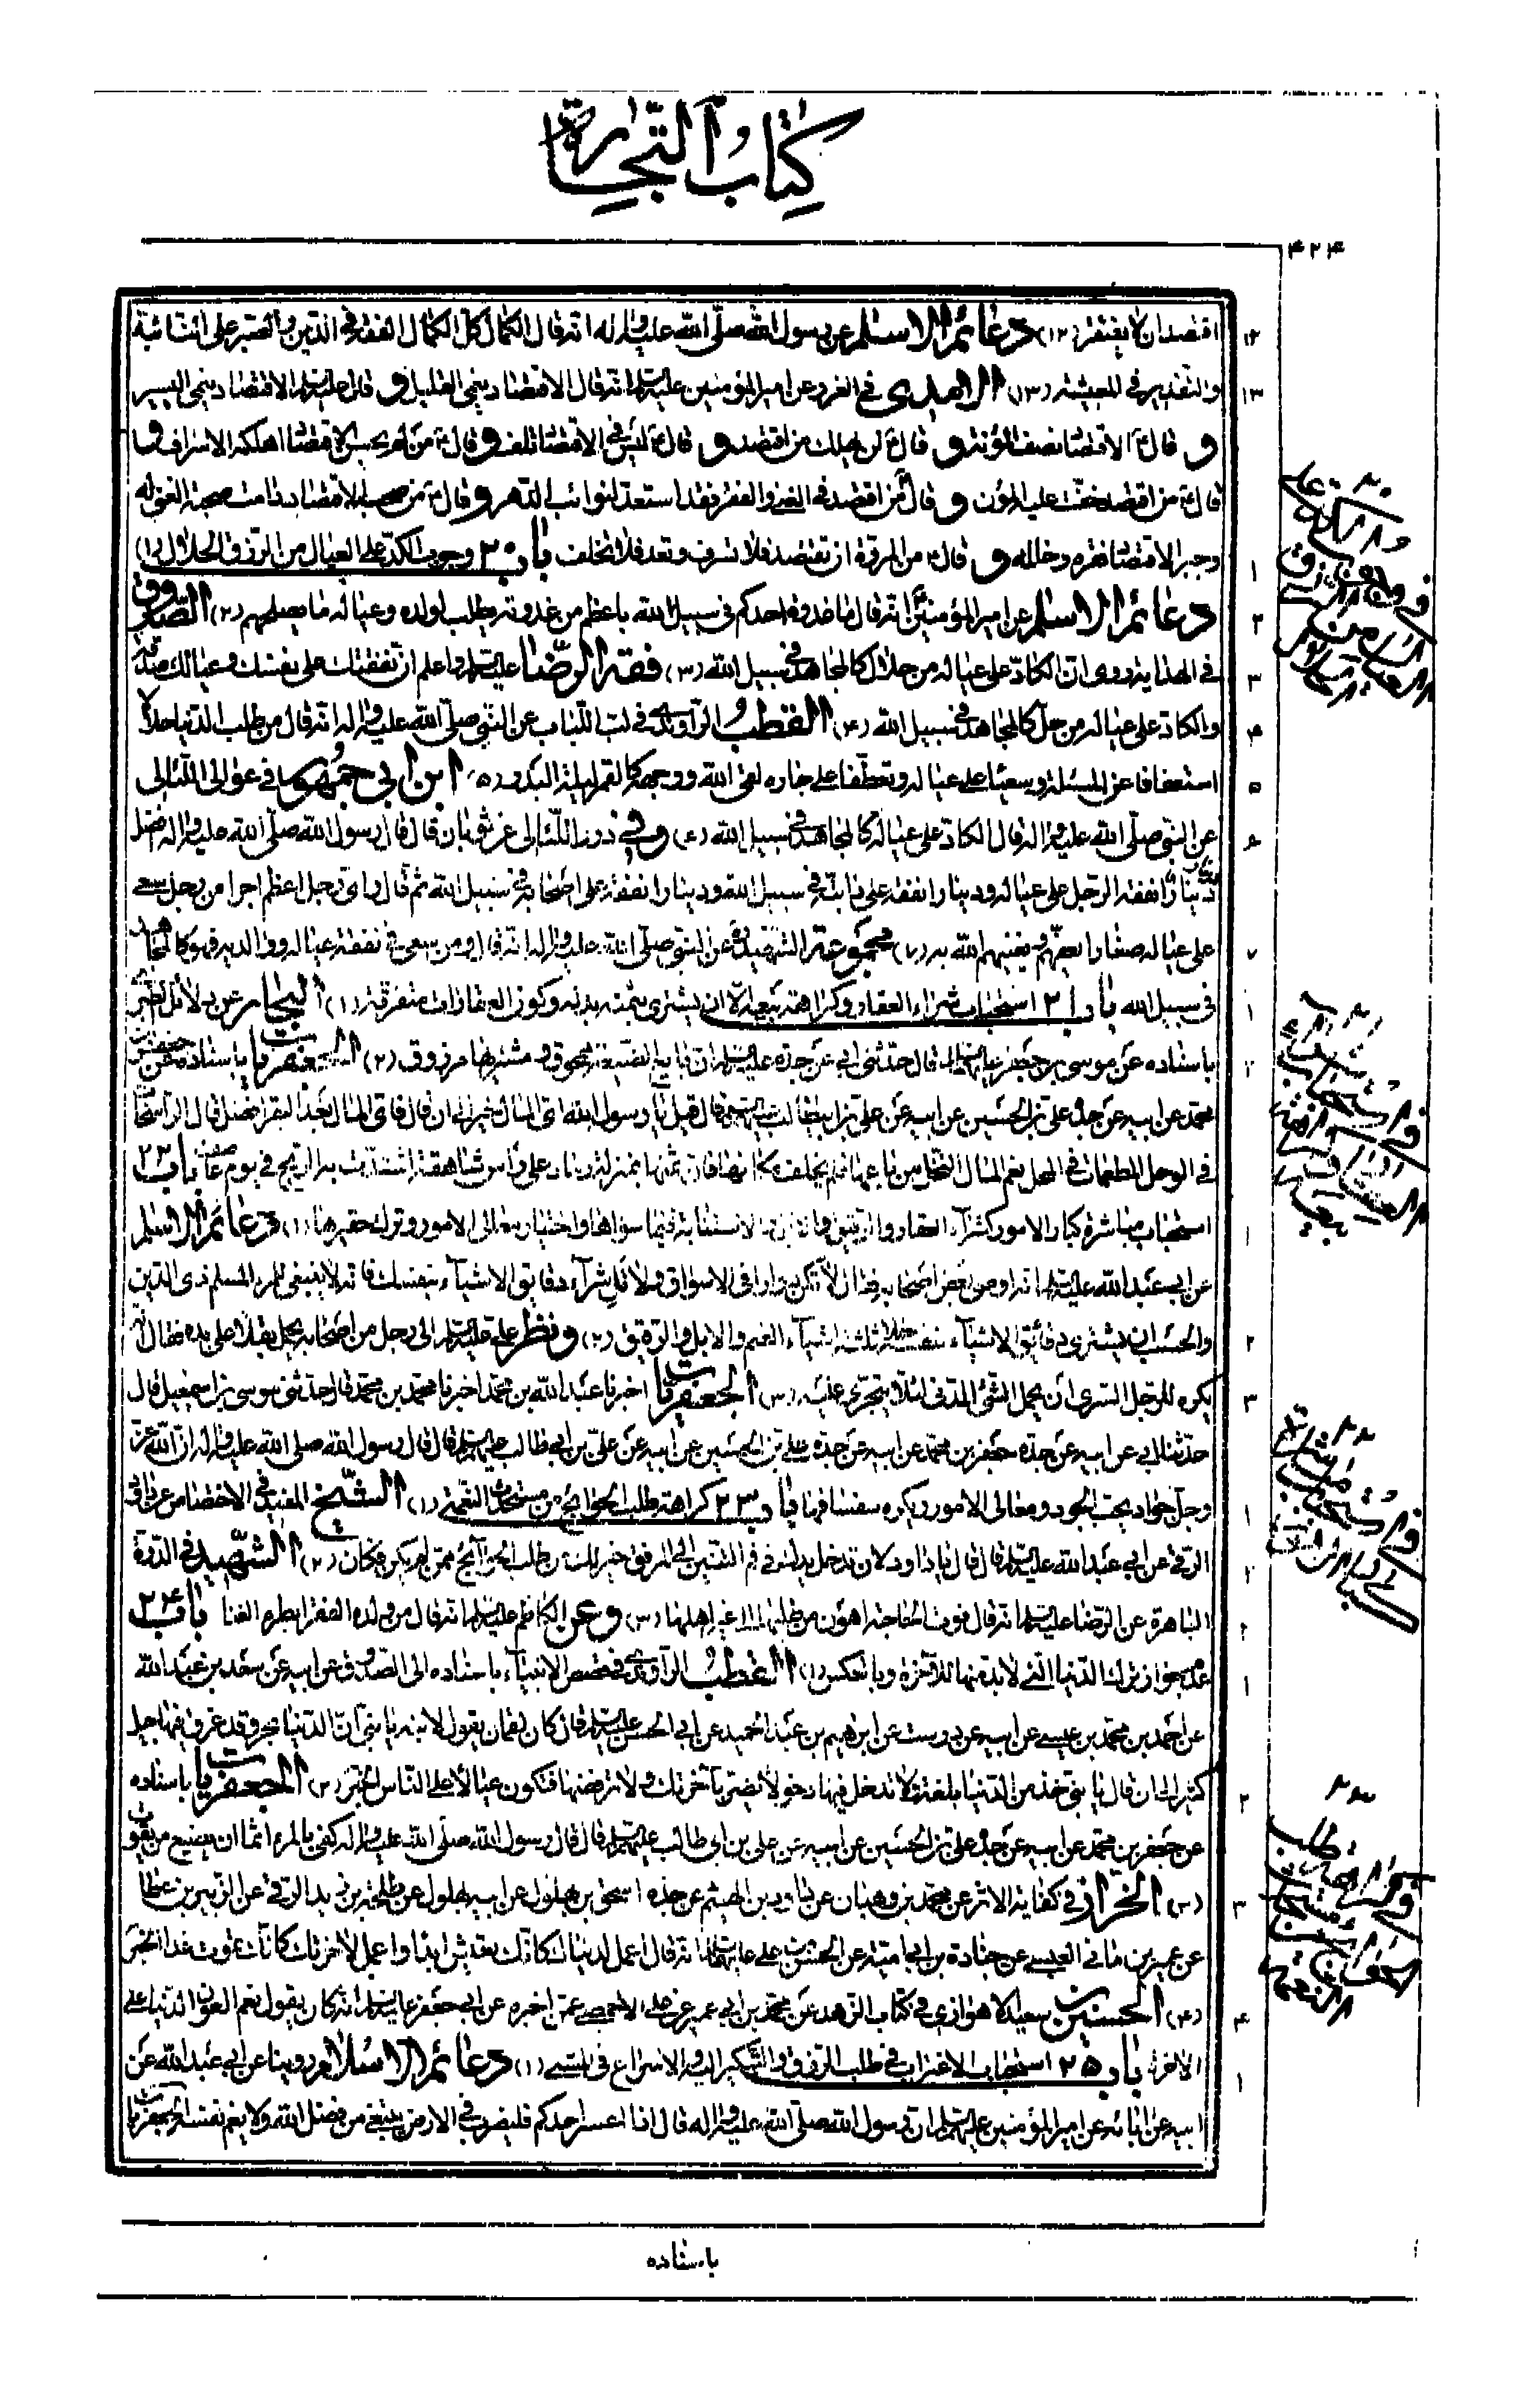 كتاب التجارة
۴۲۴
اقتصد ان لا يفتقر (۱۲) دعائم الاسلام عن رسول الله صلى الله عليه واله انه قال الكمال كل الكمال الفقه في الدين والصبر على النائبة
والتقدير في المعيشة (۱۳) الامدي في الغرر عن امير المؤمنين عليه السلام انه قال الاقتصاد ينمي القليل و قال عليه السلام الاقتصاد ينمي اليسير
و قال ع الاقتصاد نصف المؤنة و قال ع لن يهلك من اقتصد و قال ع ليس في الاقتصاد تلف و قال ع من لم يحسن الاقتصاد اهلكه الاسراف و
قال ع من اقتصد خفت عليه المؤن و قال ع من اقتصد في الغنى والفقر فقد استعد لنوائب الدهر و قال ع من صحب الاقتصاد دامت صحبة الغنى له
وجبر الاقتصاد فقره وخلله و قال ع من المروة ان تقتصد فلا تسرف وتعد فلا تخلف باب ۲۰ وجوب الكد على العيال من الرزق الحلال (۱)
دعائم الاسلام عن امير المؤمنين ع انه قال ما غدوة احدكم في سبيل الله باعظم من غدوته يطلب لولده وعياله ما يصلحهم (۲) الصدوق
في الهداية روي ان الكاد على عياله من حلال كالمجاهد في سبيل الله (۳) فقه الرضا عليه السلام واعلم ان نفقتك على نفسك وعيالك صدقة
والكاد على عياله من حل كالمجاهد في سبيل الله (۴) القطب الراوندي في لب اللباب عن النبي صلى الله عليه واله انه قال من طلب الدنيا حلالا
استعفافا عن المسئلة وسعيا على عياله وتعطفا على جاره لقى الله ووجهه كالقمر ليلة البدر (۵) ابن ابي جمهور في عوالي اللئالي
عن النبي صلى الله عليه واله قال الكاد على عياله كالمجاهد في سبيل الله (۶) وفي درر اللئالي عن ثوبان قال قال رسول الله صلى الله عليه واله افضل
دينار دينارا انفقه الرجل على عياله ودينارا انفقه على دابته في سبيل الله ودينارا انفقه على اصحابه في سبيل الله ثم قال واي رجل اعظم اجرا من رجل سعى
على عياله صغارا يعفهم ويغنيهم الله به (۷) مجموعة الشهيد ره عن النبي صلى الله عليه واله انه قال ومن سعى في نفقة عياله ووالديه فهو كالمجاهد
في سبيل الله باب ۲۱ استحباب شراء العقار وكراهة بيعه الا ان يشتري بثمنه بدله وكون العقارات متفرقة (۱) البحار عن دلائل الطبري
باسناده عن موسى بن جعفر عليهما السلام قال حدثني ابي عن جده عليه السلام ان بايع الضيعة ممحوق ومشتريها مرزوق (۲) الجعفريات باسناده عن جعفر بن
محمد عن ابيه عن جده علي بن الحسين عن ابيه عن علي بن ابيطالب عليهم السلام قال قيل يا رسول الله اي المال خير الى ان قال فاي المال بعد البقر افضل قال الراسخات
في الوحل المطعمات في المحل نعم المال النخل من باعها فلم يخلف مكانها فان ثمنها بمنزلة رماد على رأس شاهقة اشتدت به الريح في يوم عاصف باب ۲۲
استحباب مباشرة كبار الامور كشراء العقار والرقيق والابل والاستنابة فيما سواها واختيار معالي الامور وترك حقيرها (۱) دعائم الاسلام
عن ابيعبد الله عليه السلام انه اوصى بعض اصحابه فقال لا تكن دوارا في الاسواق ولا تل شراء دقايق الاشياء بنفسك فانه لا ينبغي للمرء المسلم ذي الدين
والحسب ان يشتري دقائق الاشياء بنفسه خلا ثلثة اشياء الغنم والابل والرقيق (۲) ونظر علي عليه السلام الى رجل من اصحابه يحمل بقلا على يده فقال انه
يكره للرجل السري ان يحمل الشئ الدني لئلا يتجرى عليه (۳) الجعفريات اخبرنا عبد الله بن محمد اخبرنا محمد بن محمد قال حدثني موسى بن اسمعيل قال
حدثنا ابي عن ابيه عن جده جعفر بن محمد عن ابيه عن جده علي بن الحسين عن ابيه عن علي بن ابي طالب عليهم السلام قال قال رسول الله صلى الله عليه واله ان الله عز
وجل جواد يحب الجود ومعالي الامور ويكره سفسافها باب ۲۳ كراهة طلب الحوائج من مستحدث النعمة (۱) الشيخ المفيد في الاختصاص عن داود
الرقي عن ابي عبد الله عليه السلام قال قال يا داود لان تدخل يدك في فم التنين الى المرفق خير لك من طلب الحوائج ممن لم يكن فكان (۲) الشهيد في الدرة
الباهرة عن الرضا عليه السلام انه قال فوت الحاجة اهون من طلبها الى غير اهلها (۳) وعن الكاظم عليه السلام انه قال من ولده الفقر ابطره الغنا باب ۲۴
عدم جواز ترك الدنيا التي لابد منها للاخرة وبالعكس (۱) القطب الراوندي في قصص الانبياء باسناده الى الصدوق عن ابيه عن سعد بن عبد الله
عن احمد بن محمد بن عيسى عن ابيه عن درست عن ابرهيم بن عبد الحميد عن ابي الحسن عليه السلام قال كان لقمان يقول لابنه يا بني ان الدنيا بحر وقد غرق فيها جيل
كثير الى ان قال يا بني خذ من الدنيا بلغة ولا تدخل فيها دخولا يضر باخرتك ولا ترفضها فتكون عيالا على الناس الخبر (۲) الجعفريات باسناده
عن جعفر بن محمد عن ابيه عن جده علي بن الحسين عن ابيه عن علي بن ابي طالب عليهم السلام قال قال رسول الله صلى الله عليه واله كفى بالمرء اثما ان يضيع من يقوت
(۳) الخزاز في كفاية الاثر عن محمد بن وهبان عن داود بن الهيثم عن جده اسحق بن بهلول عن ابيه بهلول عن طلحة بن زيد الرقي عن الزبير بن عطا
عن عمير بن ماني العبسي عن جنادة بن ابي امية عن الحسن بن علي عليهما السلام انه قال اعمل لدنياك كانك تعيش ابدا واعمل لاخرتك كانك تموت غدا الخبر
(۴) الحسين بن سعيد الاهوازي في كتاب الزهد عن محمد بن ابي عمير عن علي الاحمصي عمن اخبره عن ابي جعفر عليه السلام انه كان يقول نعم العون الدنيا على
الاخرة باب ۲۵ استحباب الاغتراب في طلب الرزق والتبكير اليه والاسراع في المشي (۱) دعائم الاسلام روينا عن ابي عبد الله عن
ابيه عن ابائه عن امير المؤمنين عليهم السلام ان رسول الله صلى الله عليه واله قال اذا اعسر احدكم فليضرب في الارض يبتغي من فضل الله ولا يغم نفسه الجعفريات
باسناده